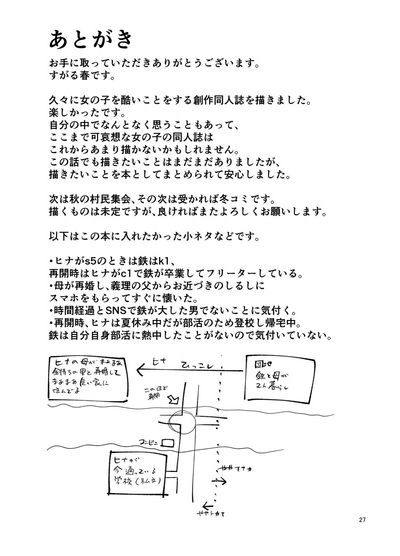 あとがき
お手に取っていただきありがとうございます。
すがる春です。
久々に女の子を酷いことをする創作同人誌を描きました。
楽しかったです。
自分の中でなんとなく思うこともあって、
ここまで可哀想な女の子の同人誌は
これからあまり描かないかもしれません。
この話でも描きたいことはまだまだありましたが、
描きたいことを本としてまとめられて安心しました。
次は秋の村民集会、その次は受かれば冬コミです。
描くものは未定ですが、良ければまたよろしくお願いします。
以下はこの本に入れたかった小ネタなどです。
・ヒナがs5のときは鉄はk1、
再開時はヒナがc1で鉄が卒業してフリーターしている。
・母が再婚し、義理の父からお近づきのしるしに
スマホをもらってすぐに懐いた。
・時間経過とSNSで鉄が大した男でないことに気付く。
・再開時、ヒナは夏休み中だが部活のため登校し帰宅中。
鉄は自分自身部活に熱中したことがないので気付いていない。
ヒナ
ひっこし
鉄と母が
コンビニ
ヒナが
今通っている
学校(私立)
27